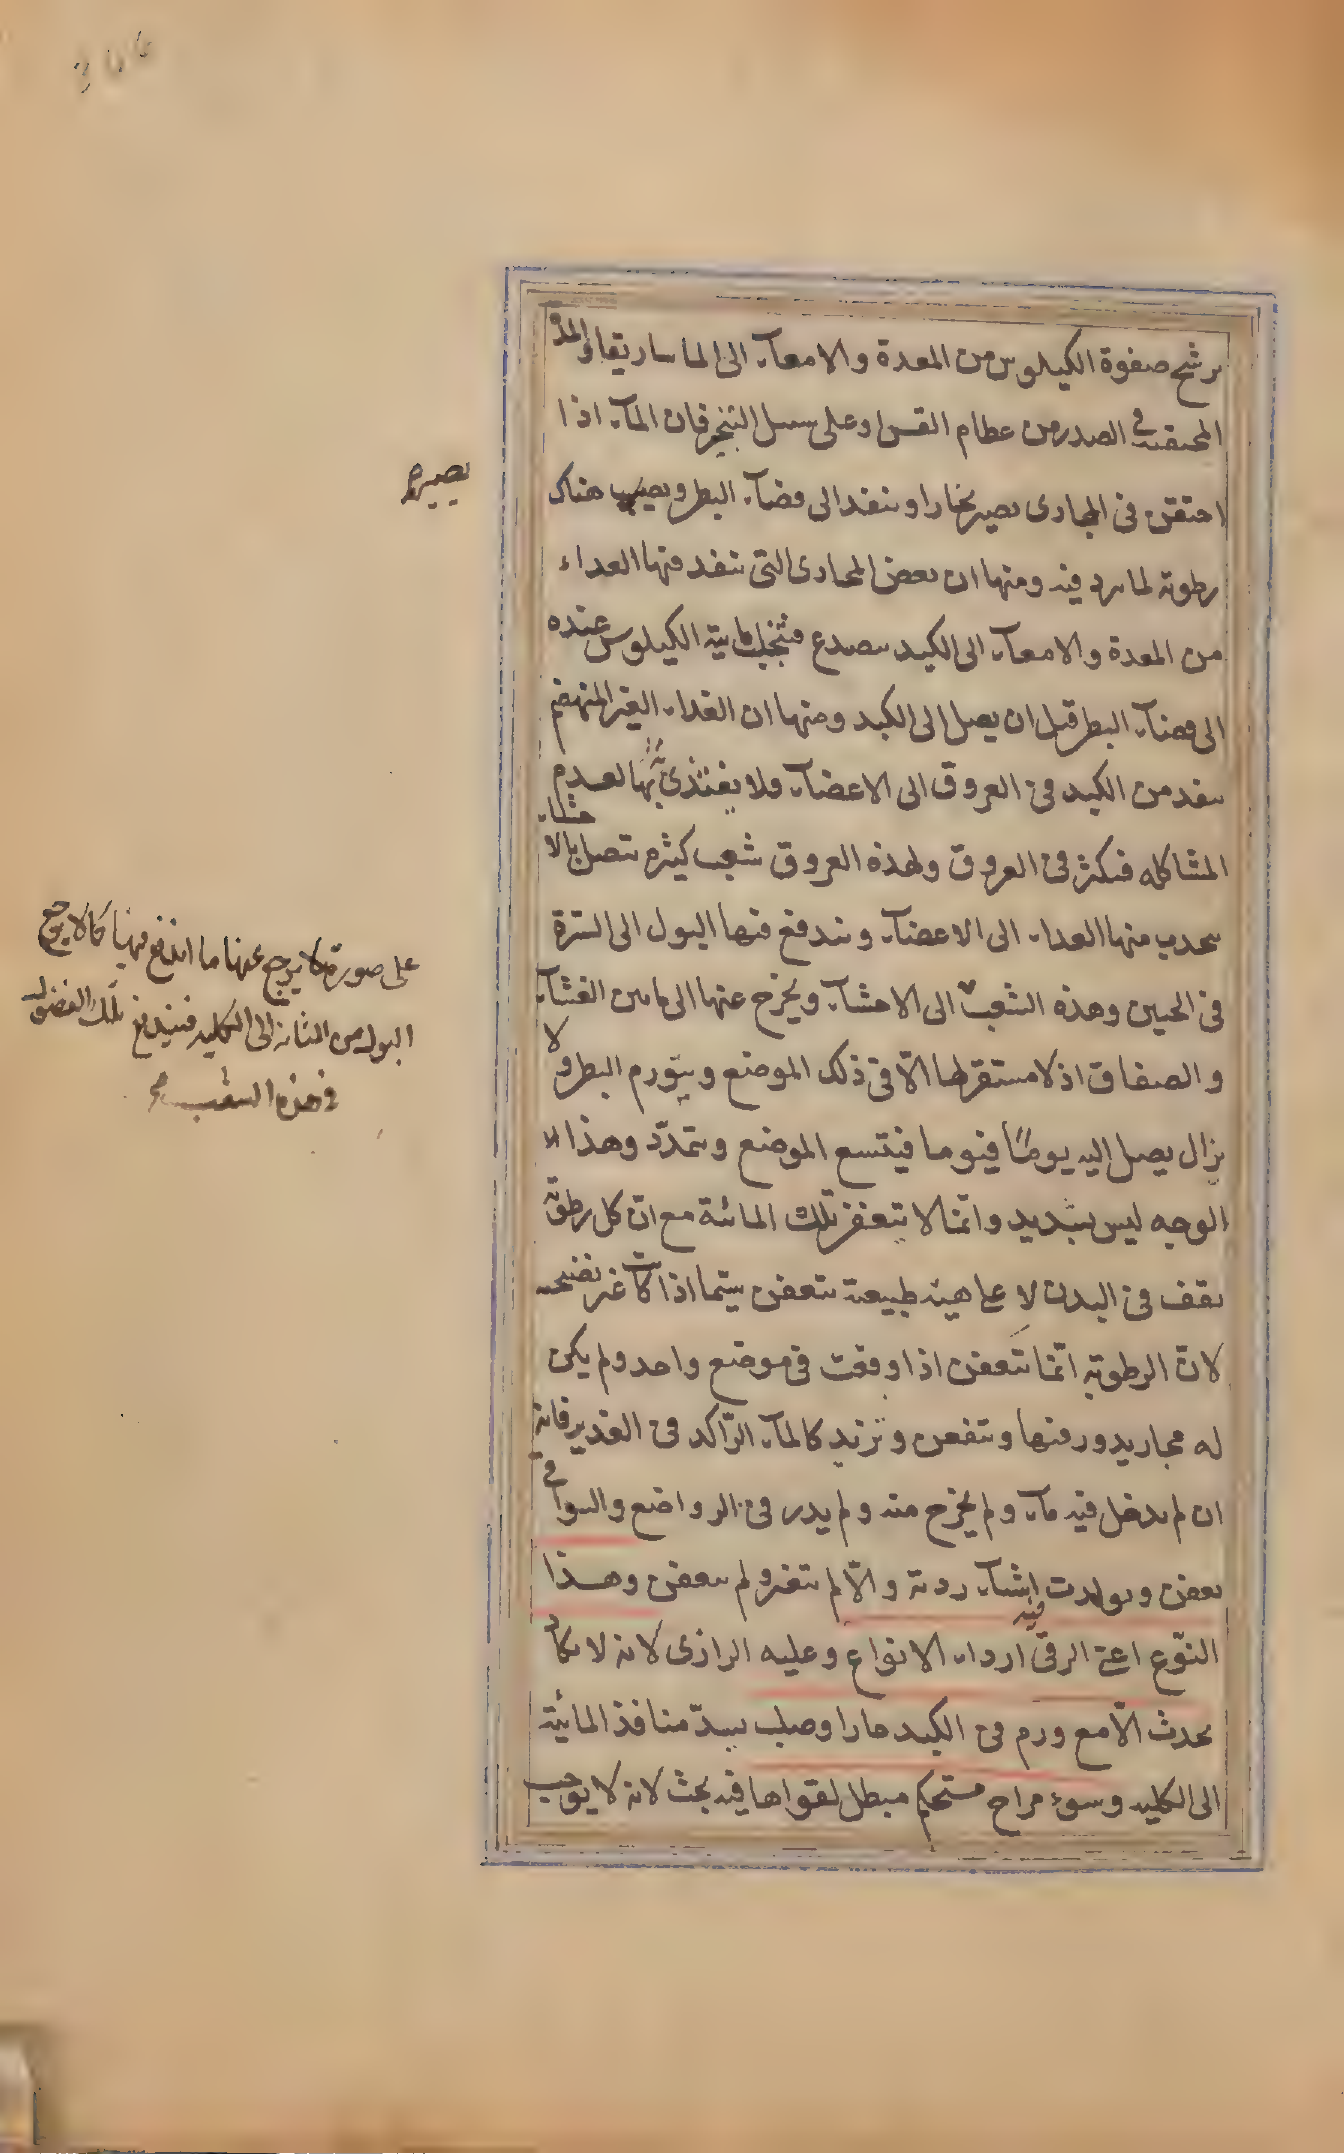 يرشح صفوة الكيلوس من المعدة والامعآء الى الماساريقا والمدة
المحتقنة فى الصدر من عظام القس او على سبيل التبخر فان المآء اذا
احتقن فى المجارى يصير بخارا وينفذ الى فضآء البطن ويصير هناك
رطوبة لما يبرد فيه ومنها ان بعض المجارى التى ينفذ فيها الغداء
من المعدة والامعآء الى الكبد ينصدع فتتحلب مايية الكيلوس عنده
الى فضآء البطن قبل ان يصل الى الكبد ومنها ان الغداء الغير المنهضم
ينفد من الكبد فى العروق الى الاعضآء ولا يغتذى بها لعدم
المشاكله فيكثر فى العروق ولهذه العروق شعب كثيره تتصل بالاحشاء
ينجذب منها الغداء الى الاعضآء ويندفع فيها البول الى السرة
فى الجنين وهذه الشعب الى الاحشآء ويخرج عنها الى ما بين الغشآء
والصفاق اذ لا مستقر لها الّا فى ذلك الموضع ويتورم البطن ولا
يزال يصل اليه يومًا فيوما فيتسع الموضع ويتمدّد وهذا
الوجه ليس بسديد وانّما لا يتعفن تلك المائية مع انّ كل رطوبة
يقف فى البدن لا على هيئة طبيعة تتعفن سيّما اذا كانت غير نضيجة
لانّ الرطوبة انّما تتعفن اذا وقفت فى موضع واحد ولم يكن
له مجار يدور فيها ويتفعن وتزيد كالمآء الرّاكد فى الغدير فانه
ان لم يدخل فيه مآء ولم يخرج منه ولم يدر فى الرواضع والسواقى
يعفن ويولدت فيه اشيآء ردية والّا لم يتغير ولم يتعفن وهذا
النوّع اعنى الزقىّ ارداء الانواع وعليه الرازى لانه لا يكاد
يحدث الّا مع ورم فى الكبد حار او صلب يسدّ منافذ المائيّة
الى الكليه وسوء مزاج مستحكم مبطل لقواها فيه بحث لانه لا يوجب
يصير
على صورة لا يرجع عنها ما اندفع فيها كما لا يرجع
البول من المثانة الى الكليه فيندفع تلك الفضول
فى هذه الشعب